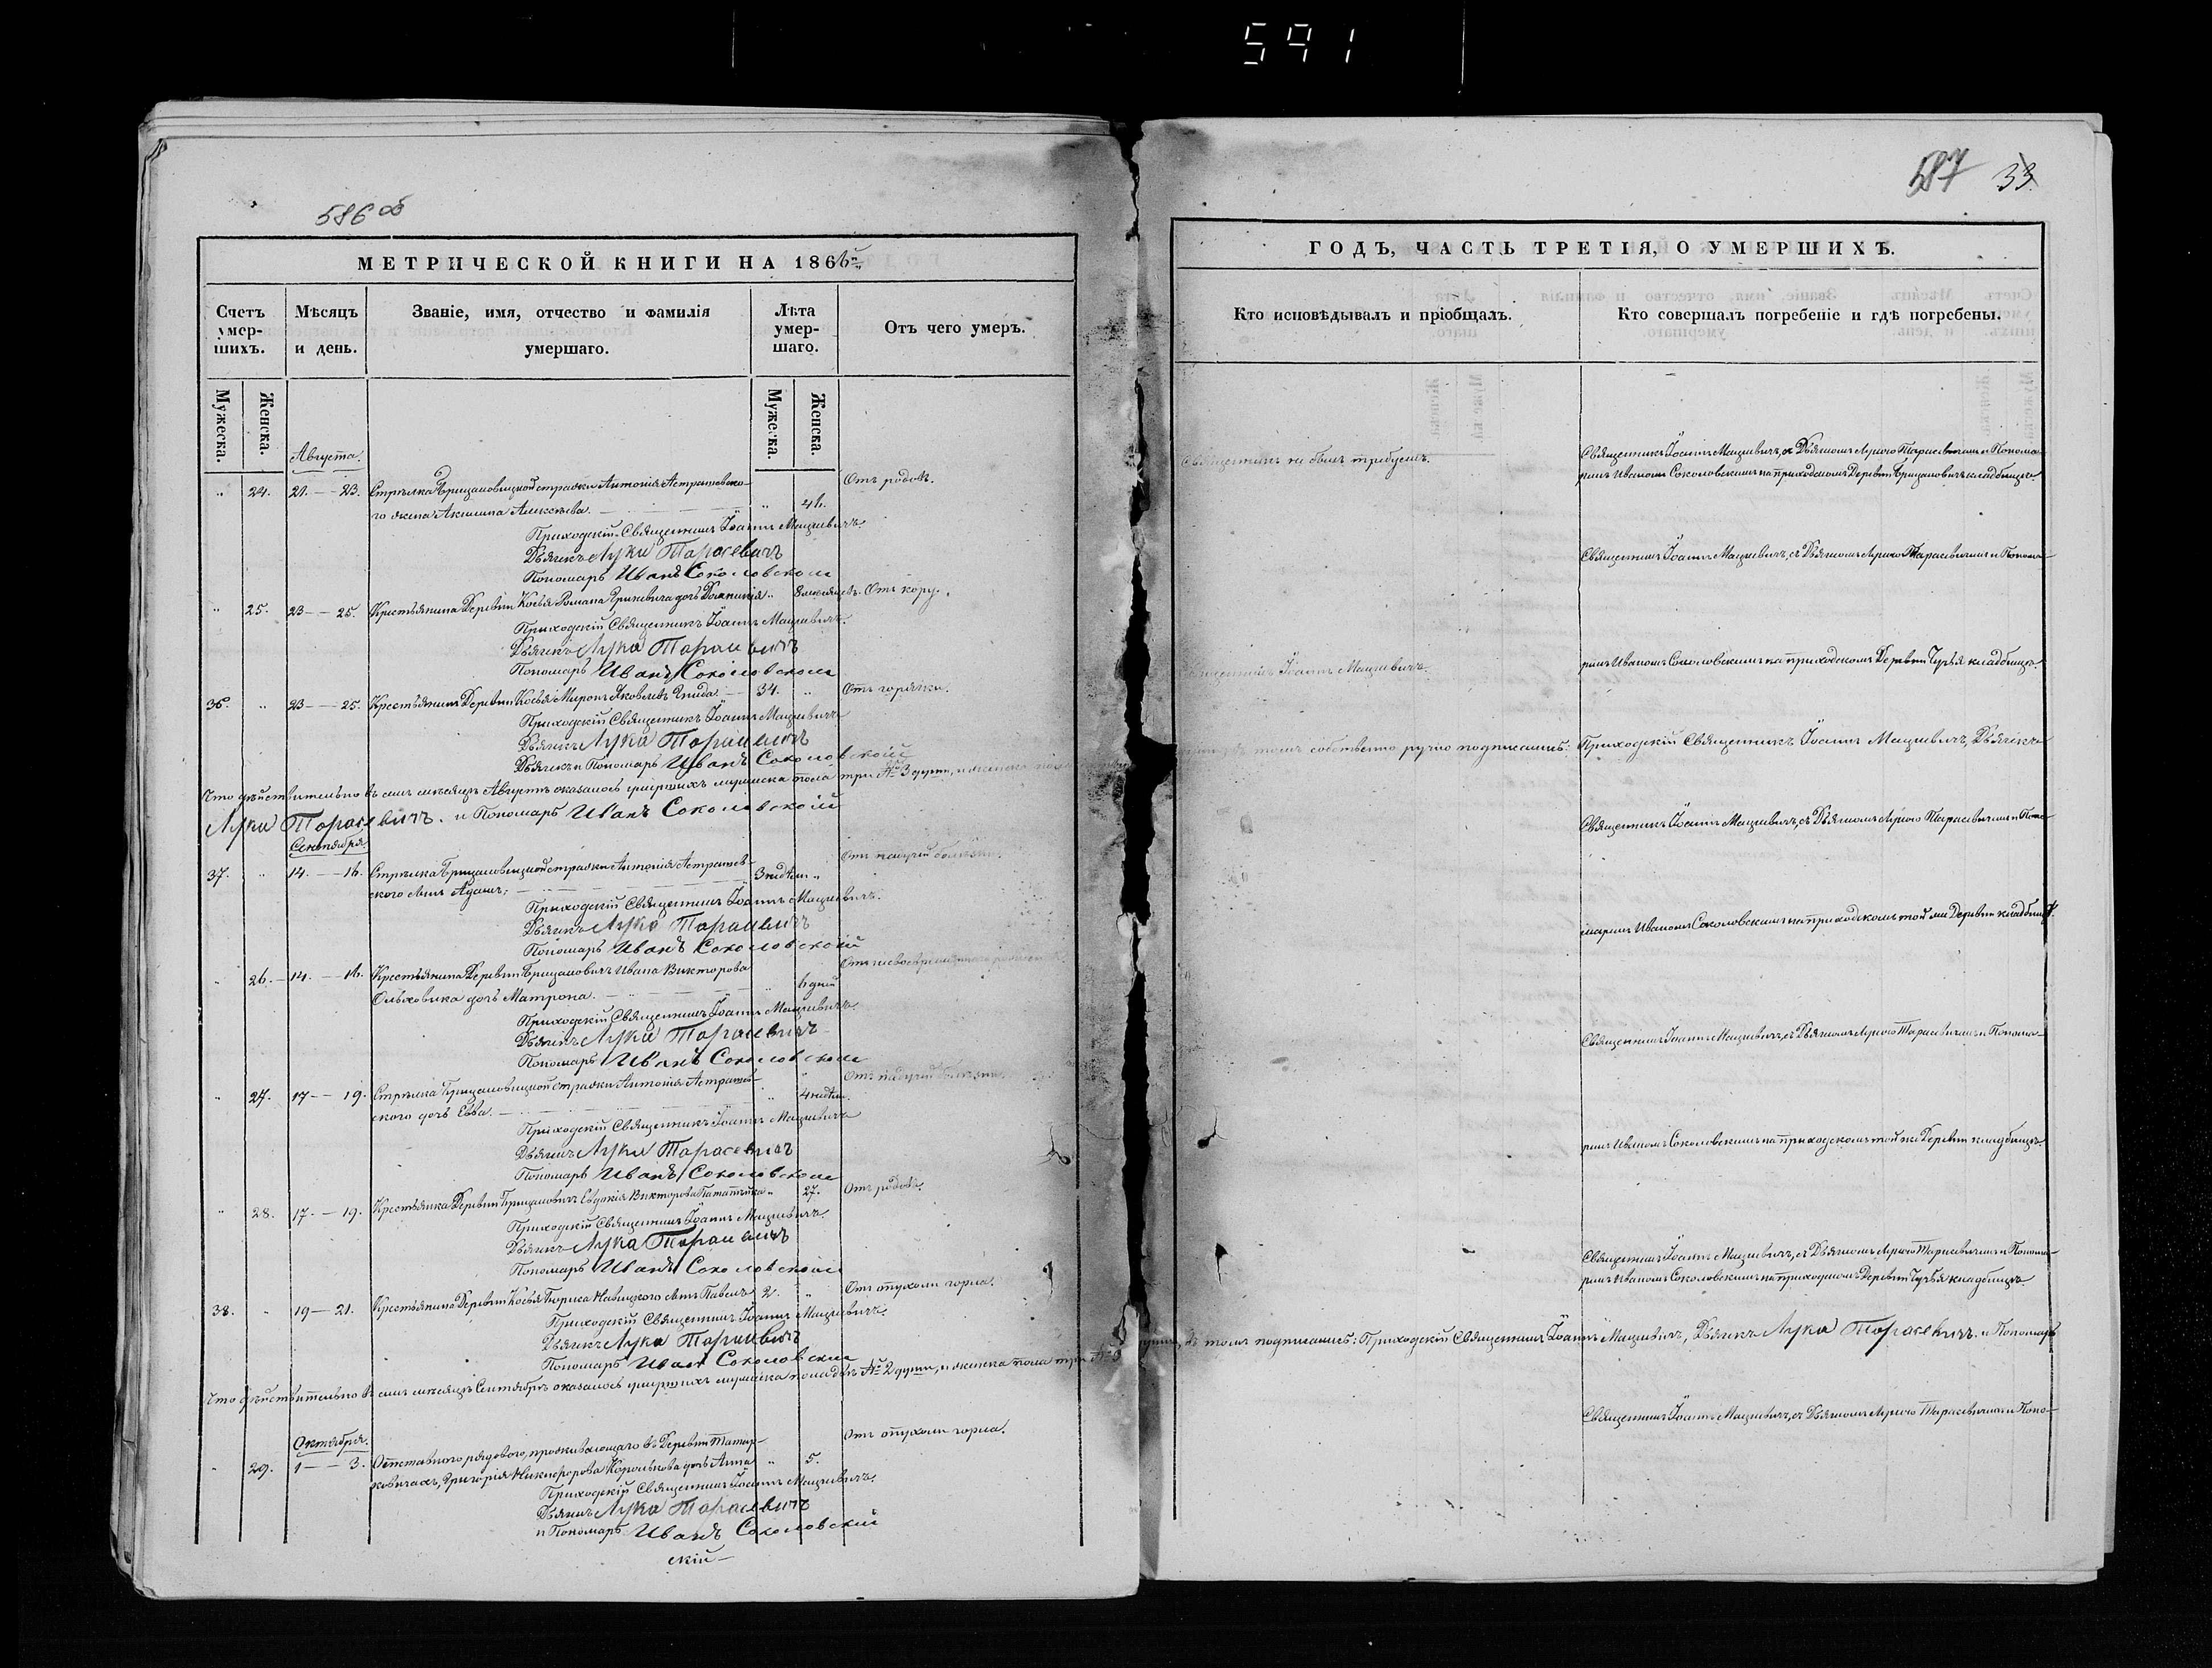 591
586 об
МЕТРИЧЕСКОЙ КНИГИ НА 1866
Счетъ умер-шихъ.
Мѣсяцъ и день.
Званіе, имя, отчество и фамилія умершаго.
Лѣта умер-шаго.
Отъ чего умеръ.
Мужеска.
Женска.
Мужеска.
Женска.
Августа.
24. 21. — 23. Стрѣлка Грицановицкой стражи Антонія Астрашевска- Отъ родовъ.
го жена Акилина Алексѣева. — 46.
Приходскій Священникъ Іоаннъ Мацкевичъ.
Дьячекъ Лука Тарасевичъ
Пономарь Иванъ Соколовский
25. 23 — 25. Крестьянина Деревни Косья Романа Гриневича дочь 8 месяцевъ. Отъ кору.
Приходскій Священникъ Іоаннъ Мацкевичъ.
Дьячекъ Лука Тарасевичъ
Пономарь Иванъ Соколовский
36. 23 — 25. Крестьянинъ Деревни Косья Миронъ Яковлевъ — 34. Отъ горячки.
Приходскій Священникъ Іоаннъ Мацкевичъ
Дьячекъ Лука Тарасевичъ
Дьячекъ и Пономарь Иванъ Соколовский
Что дѣйствительно въ семъ месяцѣ Августѣ оказалось умершихъ мужеска пола три № 3 души, и женска
Лука Тарасевичъ. и Пономарь Иванъ Соколовский
Сентября.
37. 14. — 16. Стрѣлка Грицановицкой стражи Антонія Астрашев- Отъ падучей болѣзни.
ского сынъ Адамъ; — 3 недѣли
Приходскій Священникъ Іоаннъ Мацкевичъ.
Дьячекъ Лука Тарасевичъ
Пономарь Иванъ Соколовский
26. 14. — 16. Крестьянина Деревни Грицановичъ Ивана Викторова
Ольховика дочь Матрона. — 6 дней
Приходскій Священникъ Іоаннъ Мацкевичъ.
Дьячекъ Лука Тарасевичъ
Пономарь Иванъ Соколовский
27. 17 — 19. Стрѣлка Грицановицкой стражи Антонія Астрашев- Отъ падучей болѣзни.
ского дочь Евва. — 4 недѣли.
Приходскій Священникъ Іоаннъ Мацкевичъ
Дьячекъ Лука Тарасевичъ
Пономарь Иванъ Соколовский
28. 17. — 19. Крестьянка Деревни Грицановичъ Евдокія Викторова 27. Отъ родовъ.
Приходскій Священникъ Іоаннъ Мацкевичъ.
Дьячекъ Лука Тарасевичъ
Пономарь Иванъ Соколовский
38. 19 — 21. Крестьянина Деревни Косья сынъ Павелъ 2. Отъ опухоли горла.
Приходскій Священникъ Іоаннъ Мацкевичъ.
Дьячекъ Лука Тарасевичъ
Пономарь Иванъ Соколовский
Что дѣйствительно въ семъ месяцѣ Сентябрѣ оказалось умершихъ мужеска пола двѣ № 2 души, и женска пола три № 3
Октября.
29. 1 — 3. Отставного рядового, проживающаго въ Деревни Татар- Отъ опухоли горла.
ковичахъ, Григорія Никифорова дочь Анна 5.
Приходскій Священникъ Іоаннъ Мацкевичъ.
Дьячекъ Лука Тарасевичъ
и Пономарь Иванъ Соколовскій
скій —
587 33
ГОДЪ, ЧАСТЬ ТРЕТІЯ, О УМЕРШИХЪ.
Кто исповѣдывалъ и пріобщалъ.
Кто совершалъ погребеніе и гдѣ погребены.
Священникъ не былъ требуемъ.
Священникъ Іоаннъ Мацкевичъ, съ Дьячкомъ Лукою Тарасевичемъ и Понома-
ремъ Иваномъ Соколовскимъ на приходскомъ Деревни Грицановичъ кладбищѣ.
Священникъ Іоаннъ Мацкевичъ, съ Дьячкомъ Лукою Тарасевичемъ и Понома-
Священникъ Іоаннъ Мацкевичъ.
ремъ Иваномъ Соколовскимъ на приходскомъ Деревни кладбищѣ
въ томъ собственно ручно подписались: Приходскій Священникъ Іоаннъ Мацкевичъ, Дьячекъ
Священникъ Іоаннъ Мацкевичъ, съ Дьячкомъ Лукою Тарасевичемъ и Поно-
маремъ Иваномъ Соколовскимъ на приходскомъ той же Деревни кладбищѣ.
Священникъ Іоаннъ Мацкевичъ, съ Дьячкомъ Лукою Тарасевичемъ и Понома-
ремъ Иваномъ Соколовскимъ на приходскомъ той же Деревни кладбищѣ.
Священникъ Іоаннъ Мацкевичъ, съ Дьячкомъ Лукою Тарасевичемъ и Понома-
ремъ Иваномъ Соколовскимъ на приходскомъ Деревни кладбищѣ.
души, въ томъ подписались: Приходскій Священникъ Іоаннъ Мацкевичъ, Дьячекъ Лука Тарасевичъ. и Пономарь
Священникъ Іоаннъ Мацкевичъ, съ Дьячкомъ Лукою Тарасевичемъ и Поно-